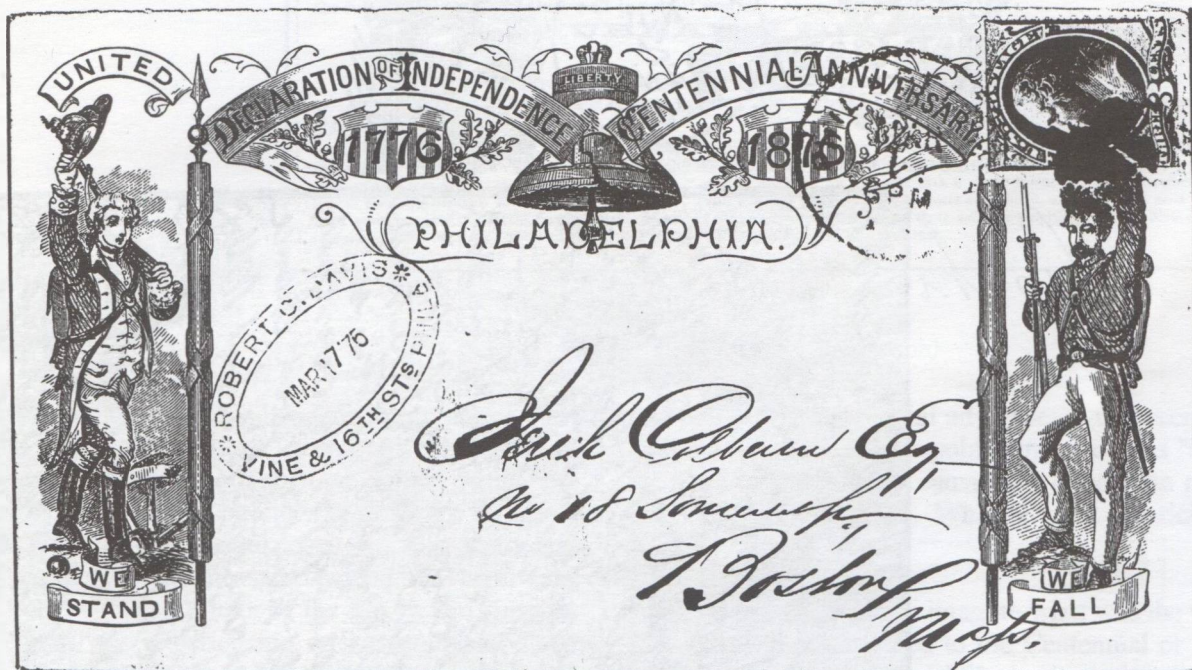 UNITED
DECLARATION OF INDEPENDENCE
LIBERTY
CENTENNIAL ANNIVERSARY
1776
1876
PHILADELPHIA.
8 PM
* ROBERT C. DAVIS *
MAR 17 76
VINE & 16TH STS PHILA
Esq
No 18 Somerset
Boston
Mass.
WE
STAND
WE
FALL